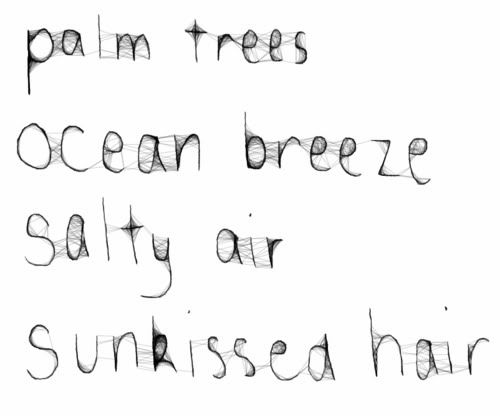 palm trees
ocean breeze
salty air
sunkissed hair